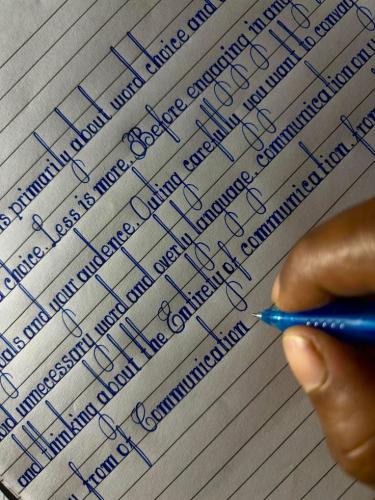 is primarily about word choice and
choice. Less is more. Before engaging in any
and your audence. Outing carefully you want to convey
unnecessary word and overly language. communication on
and thinking about the Entirety of communication. from
from of Communication